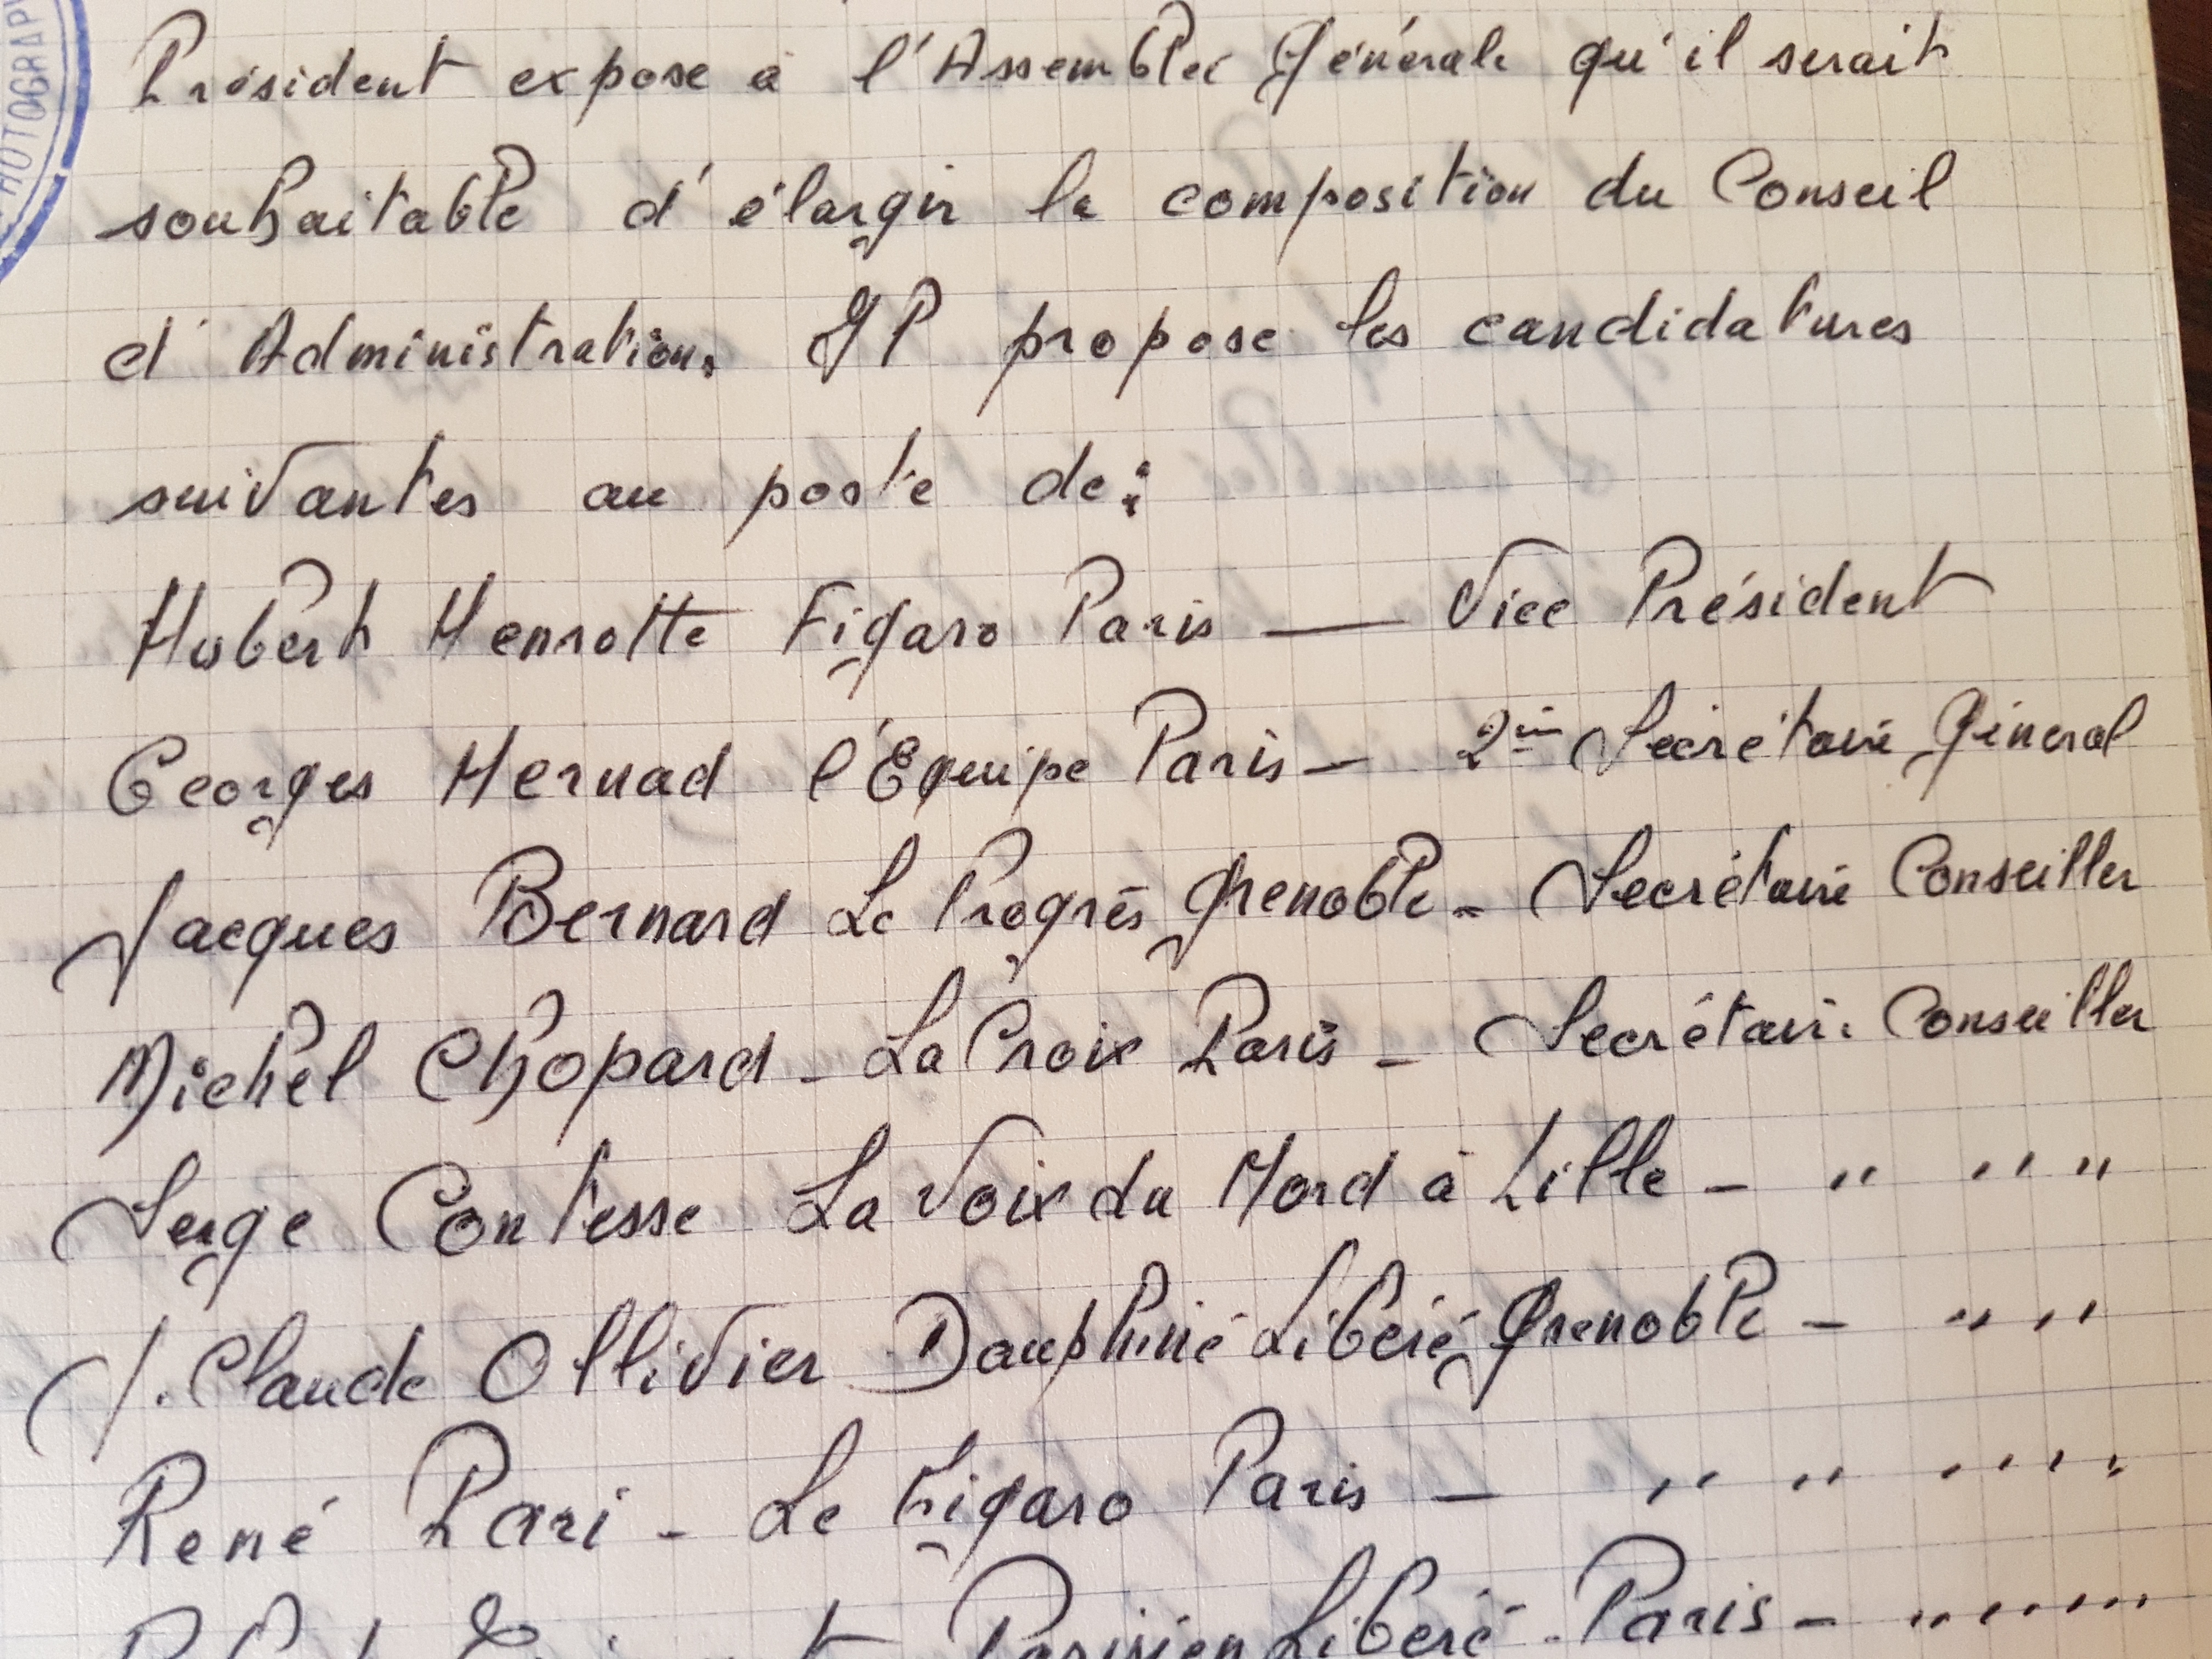 HOTOGRAP
Président expose à l'Assemblée Générale qu'il serait
souhaitable d'élargir la composition du Conseil
d'Administration. Il propose les candidatures
suivantes au poste de :
Hubert Henrotte Figaro Paris — Vice Président
Georges Hernad l'Équipe Paris — 2èm Secrétaire Général
Jacques Bernard Le Progrès Grenoble - Secrétaire Conseiller
Michel Chopard - La Croix Paris - Secrétaire Conseiller
Serge Contesse La Voix du Nord à Lille - " " "
J. Claude Ollivier Dauphiné Libéré Grenoble - " "
René Pari - Le Figaro Paris - " " " "
Parisien Libéré - Paris - " " " "